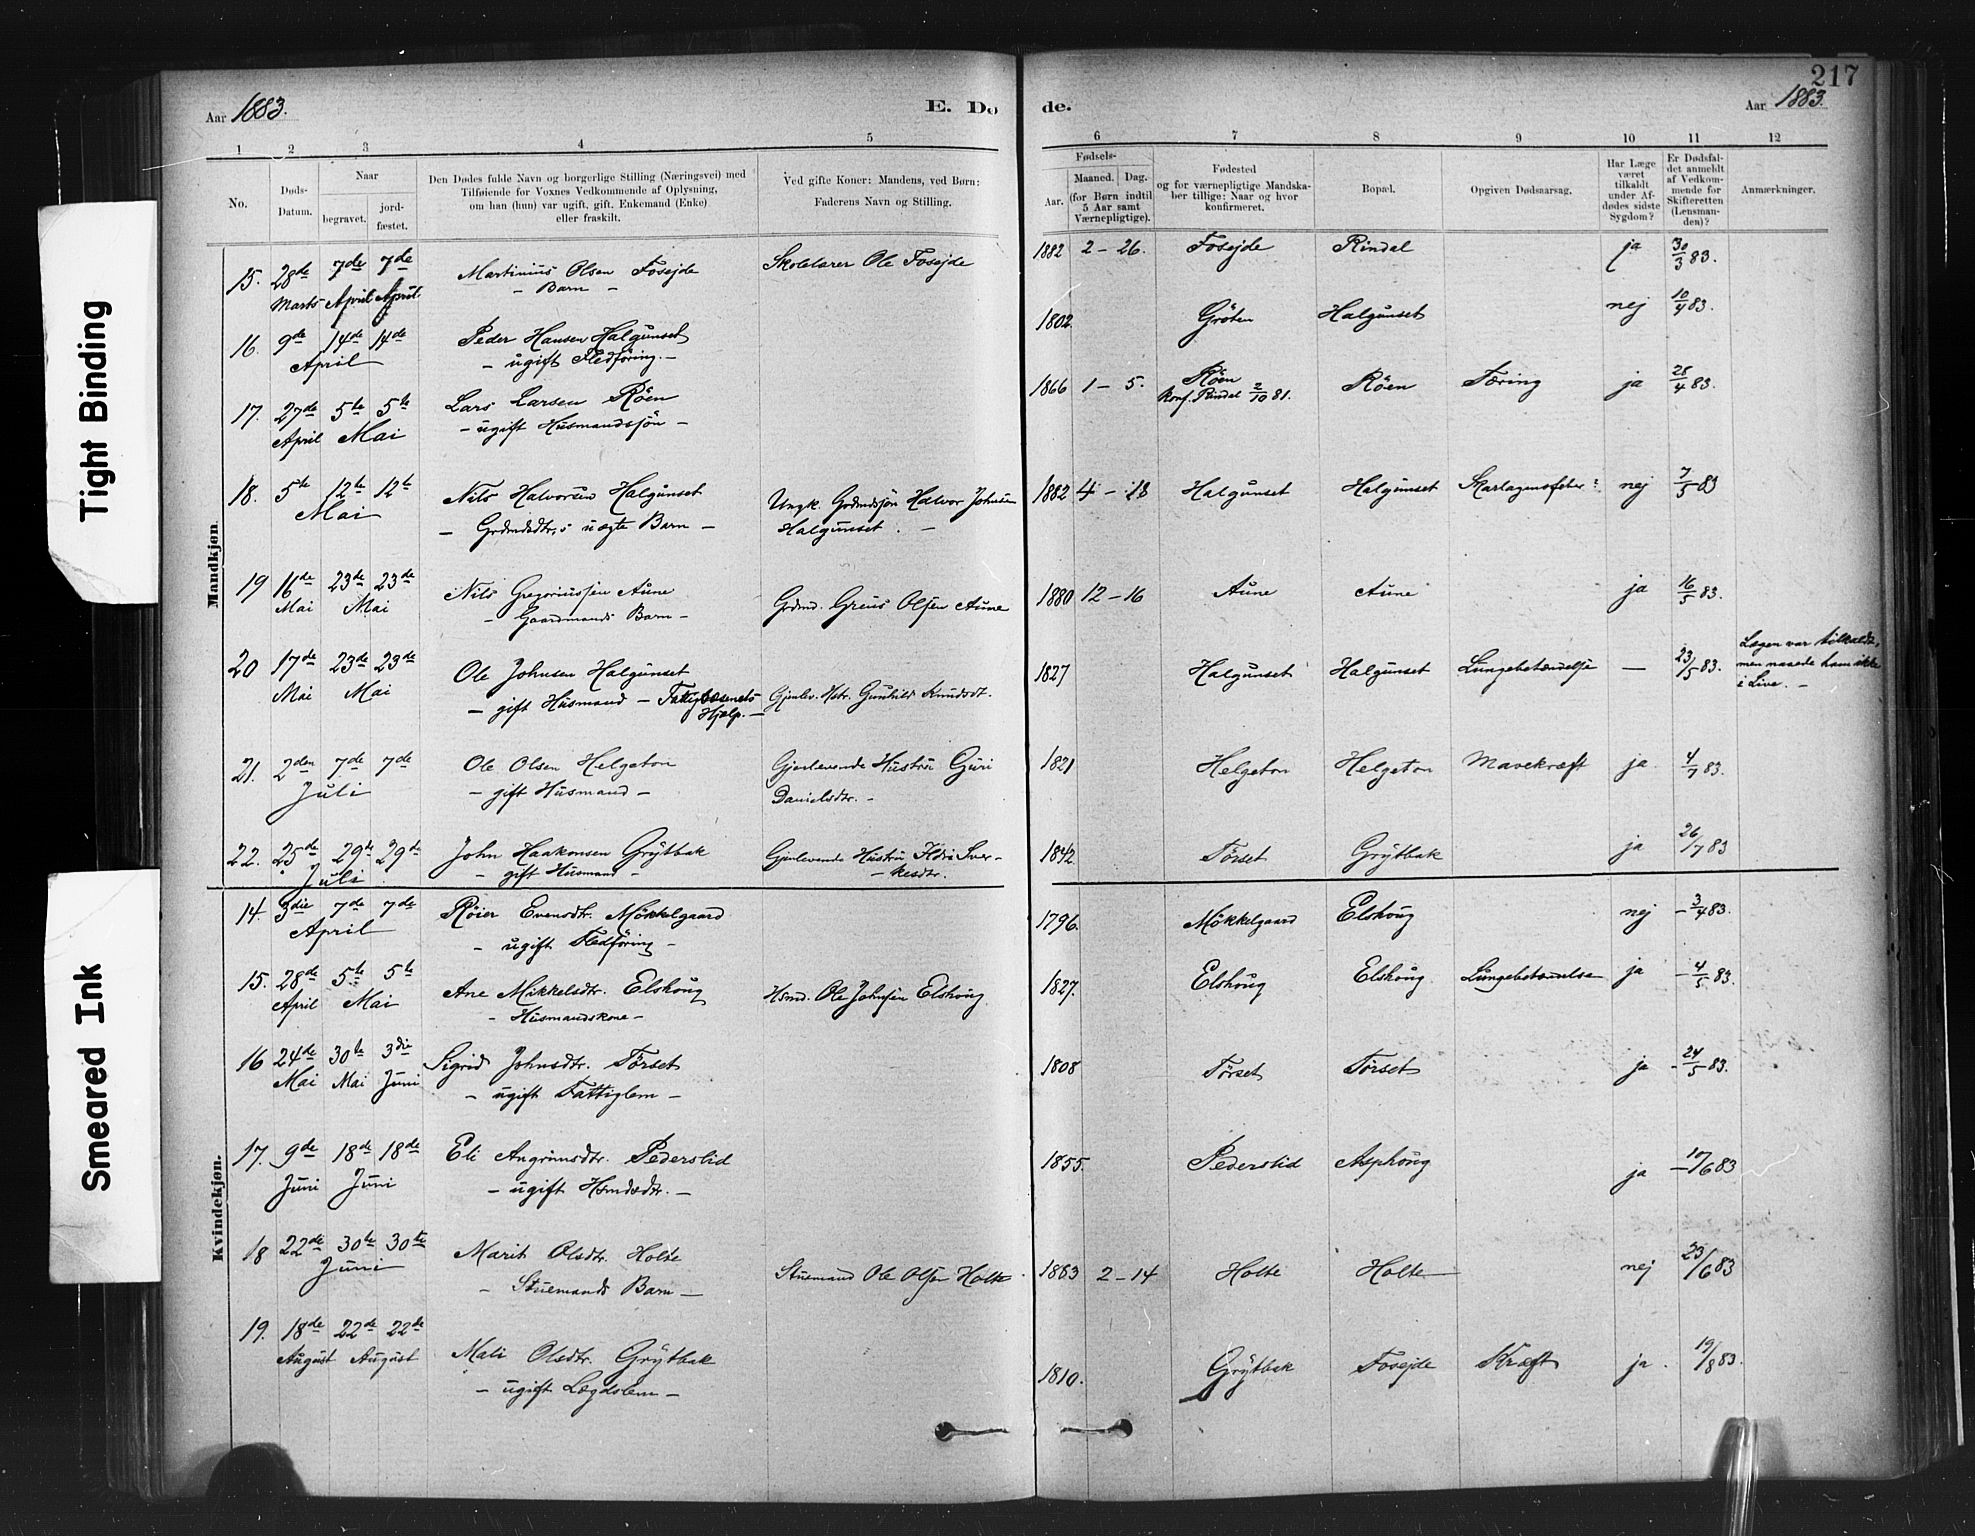 217
Aar 1883.
E. Dø
de.
Aar 1883.
1 2 3 4 5 6 7 8 9 10 11 12
No.
Døds-
Datum.
Naar
begravet.
jord-
fæstet.
Den Dødes fulde Navn og borgerlige Stilling (Næringsvei) med
Tilføiende for Voxnes Vedkommende af Oplysning,
om han (hun) var ugift, gift, Enkemand (Enke)
eller fraskilt.
Ved gifte Koner: Mandens, ved Børn:
Faderens Navn og Stilling.
Fødsels-
Aar.
Maaned. Dag.
(for Børn indtil
5 Aar samt
Værnepligtige).
Fødested
og for værnepligtige Mandska-
ber tillige: Naar og hvor
konfirmeret.
Bopæl.
Opgiven Dødsaarsag.
Har Læge
været
tilkaldt
under Af-
dødes sidste
Sygdom?
Er Dødsfal-
det anmeldt
af Vedkom-
mende for
Skifteretten
(Lensman-
den)?
Anmærkninger.
Mandkjøn.
15. 28de 7de 7de Martinius Olsen Fosejde Skolelærer Ole Fosejde 1882 2 – 26. Fosejde Rindal ja 30/3 83.
Marts April April – Barn –
16. 9de 14de 14de Peder Hansen Halgunset 1802. Gröten Halgunset nej 10/4 83.
April – ugift Fledföring. –
17. 27de 5te 5te Lars Larsen Röen 1866 1 – 5. Röen Röen Tæring ja 28/4 83.
April Mai – ugift Husmandssön – Konf. Rindal 2/10 81.
18. 5te 12te 12te Nils Halvorsen Halgunset Ungk. Grdmdssön Halvor Johnsen 1882 4 – 18 Halgunset Halgunset Skarlagensfeber? nej 7/5 83
Mai – Grdmdsdtr.s uægte Barn – Halgunset. –
19 16de 23de 23de Nils Gregoriussen Aune Grdmd. Greus Olsen Aune 1880 12 – 16 Aune Aune ja 16/5 83.
Mai Mai – Gaardmands Barn –
20 17de 23de 23de Ole Johnsen Halgunset 1827 Halgunset Halgunset Lungebetændelse — 23/5 83. Lægen var tilkaldt,
Mai Mai – gift Husmand – Fattigvæsenets Gjenlev. Hstr. Gunhild Knudsdt. men naaede ham ikke
Hjælp. – i Live. –
21. 2den 7de 7de Ole Olsen Helgeton Gjenlevende Hustru Guri 1821 Helgeton Helgeton Mavekræft ja 4/7 83.
Juli – gift Husmand – Danielsdtr. –
22. 25de 29de 29de John Haakonsen Grytbak Gjenlevende Hustru Ildri Sver- 1842 Törset Grytbak ja 26/7 83
Juli – gift Husmand – – kesdtr.
Kvindekjøn.
14. 3die 7de 7de Röier Evensdtr. Mökkelgaard 1796. Mökkelgaard Elshöug nej – 3/4 83.
April – ugift Fledföring –
15. 28de 5te 5te Ane Mikkelsdtr. Elshöug Hsmd. Ole Johnsen Elshöug 1827. Elshöug Elshöug Lungebetændelse ja – 4/5 83.
April Mai – Husmandskone –
16 24de 30te 3die Sigrid Johnsdtr. Törset 1808 Törset Törset ja – 24/5 83.
Mai Mai Juni – ugift Fattiglem –
17. 9de 18de 18de Eli Angrimsdtr. Pederslid 1855. Pederslid Asphöug ja – 10/6 83
Juni Juni – ugift Hsmdsdtr. –
18 22de 30te 30te Marit Olsdtr. Holte Stuemand Ole Olsen Holte 1883 2 – 14 Holte Holte nej 23/6 83
Juni – Stuemands Barn –
19. 18de 22de 22de Mali Olsdtr. Grytbak 1810. Grytbak Fosejde Kræft ja. 19/8 83.
August August – ugift Lægdslem –
Tight Binding
Smeared Ink